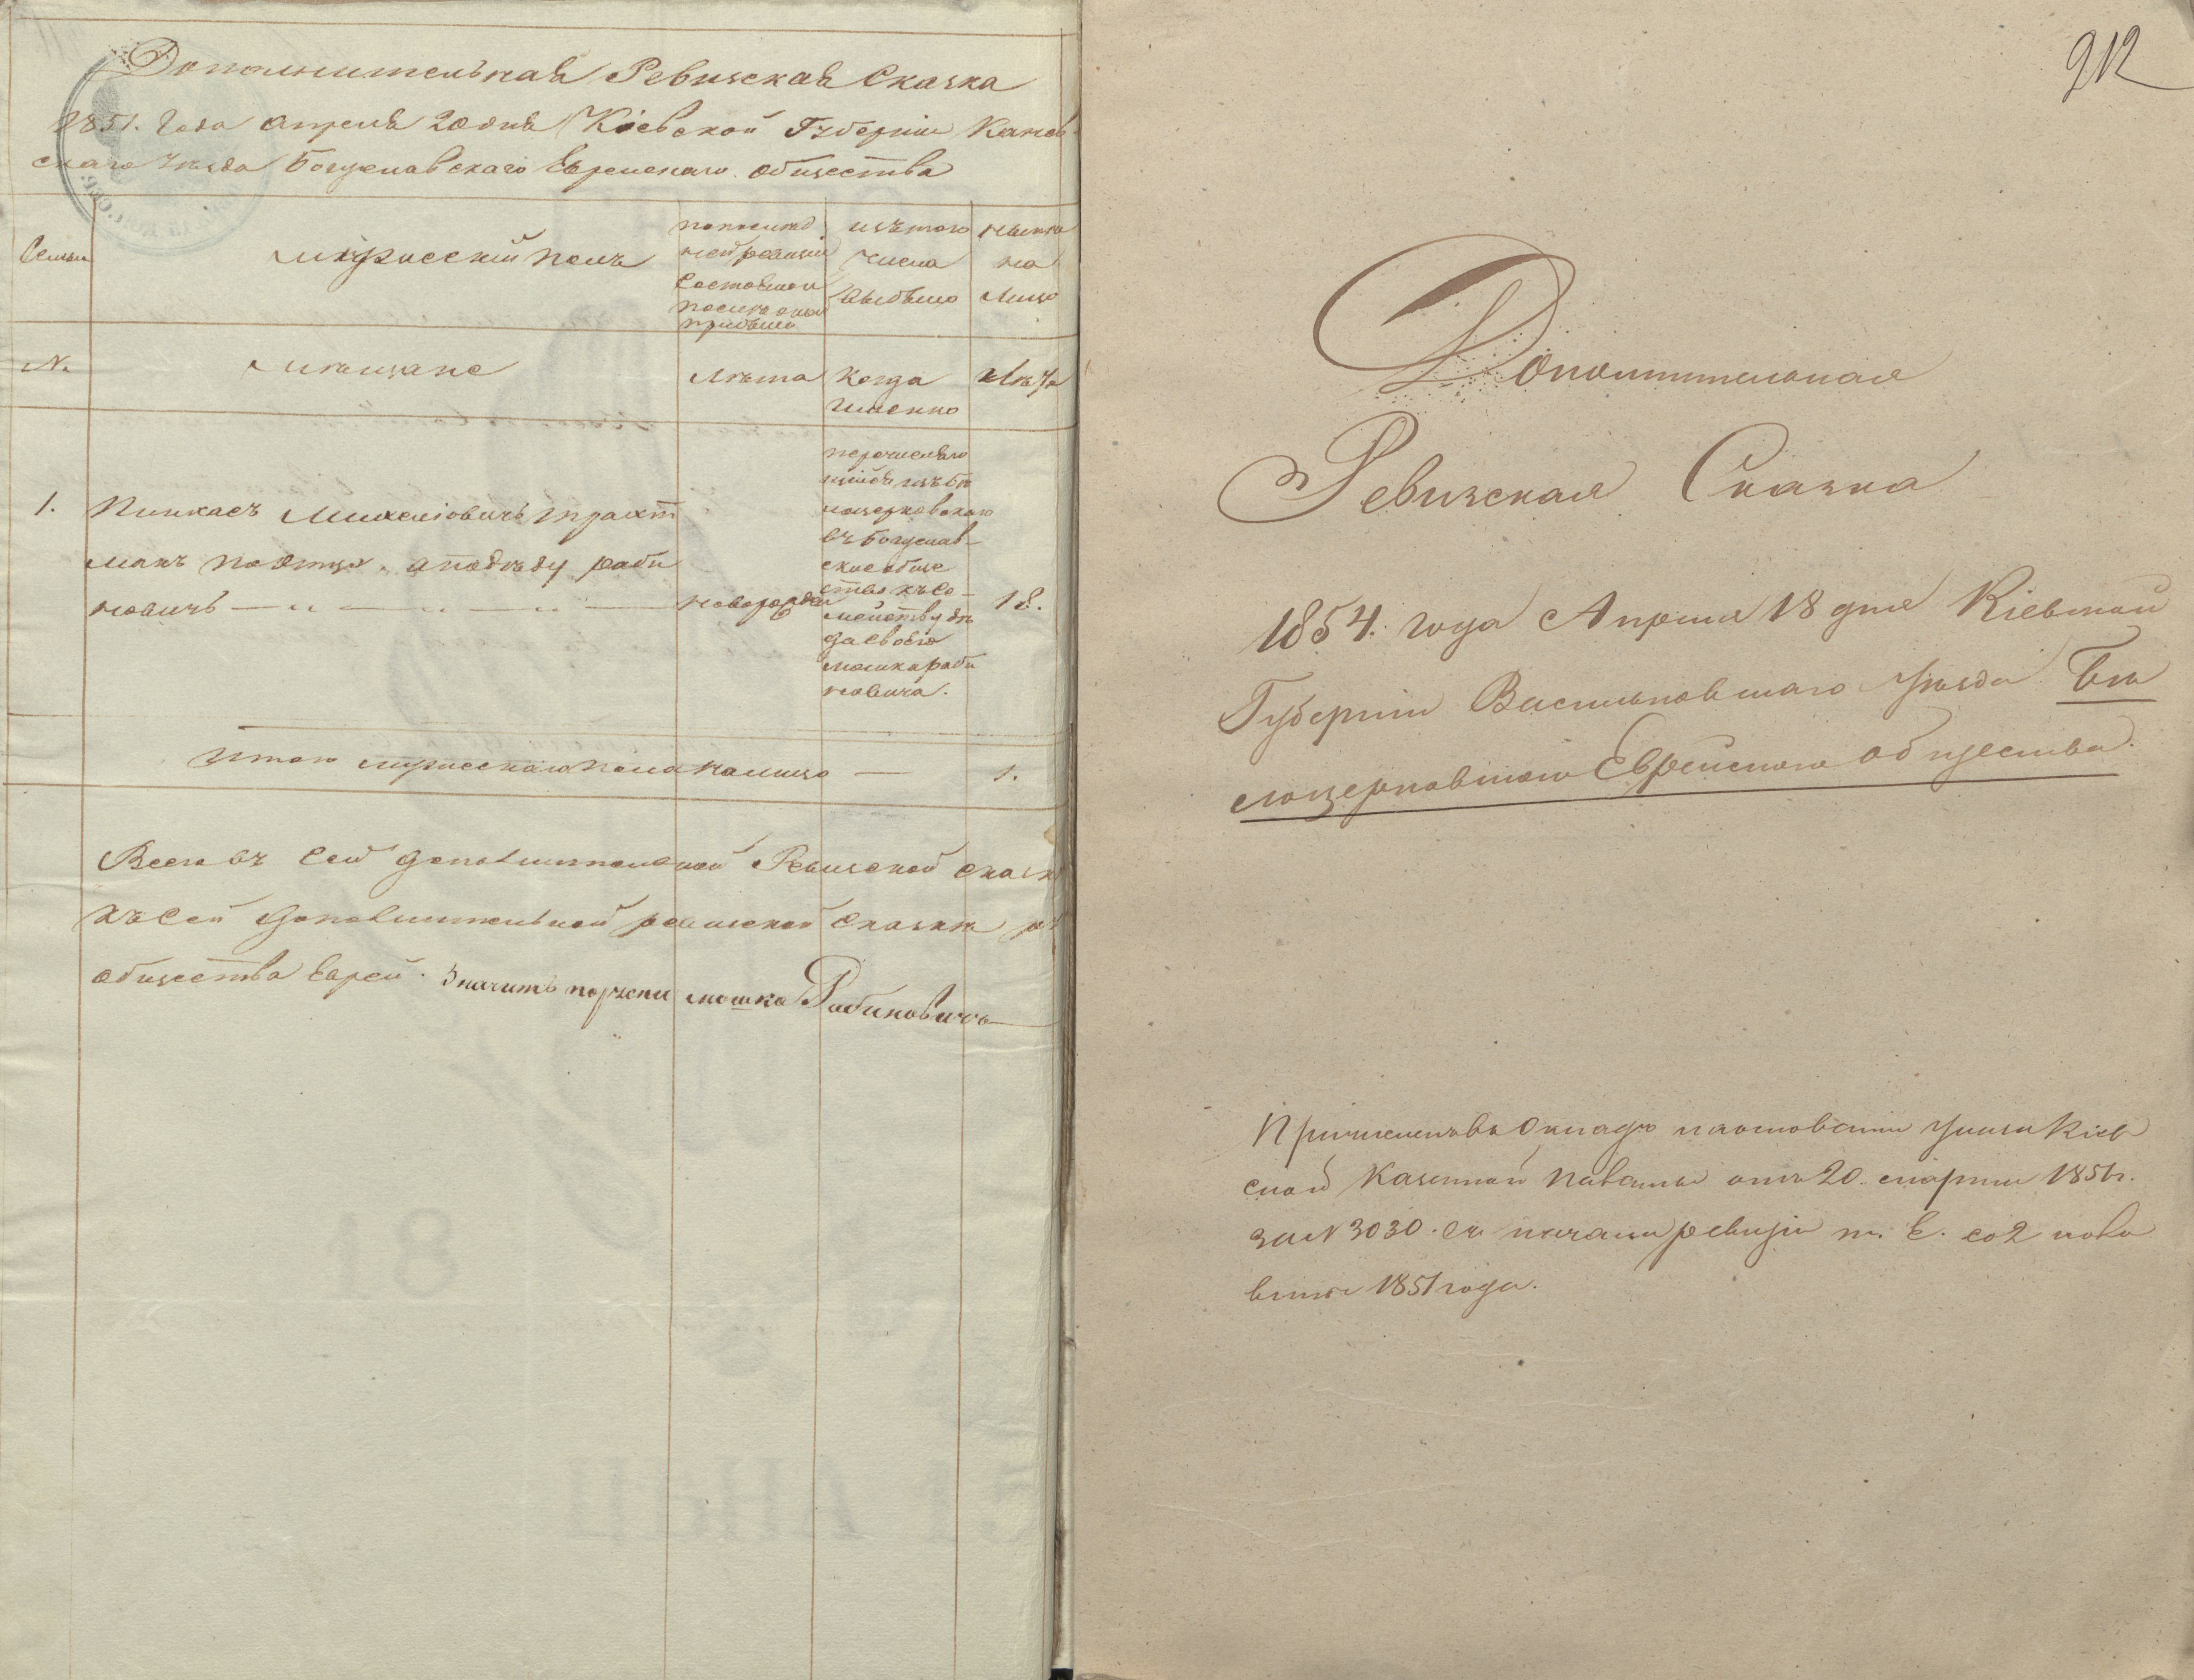 Дополнительная Ревизская Сказка
1851. Года Апреля 20 дня Кіевской Губерніи Канев
скаго Уѣзда Богуславскаго Еврейскаго общества
Семьи
мужескій полъ
по послѣд
ней ревизіи
состояло и
послѣ оной
прибыло
изъ того
числа
выбыло
нынѣ
на
лицо
№
мѣщане
Лѣта
Когда
именно
Лѣта
1.
Пинкасъ Михелiовичъ Трахт
манъ по отцу, а по дѣду Раби
новичъ
новорожден
перечислив
шійся изъ Бѣ
лоцерковскаго
въ Богуслав
ское обще
ство къ се
мейству дѣ
да своего
мошка Раби
новича.
18.
Итого мужескаго пола налицо — 1.
Всего въ сей дополнительной Ревизской сказк
Къ сей дополнительной ревизской сказкѣ
общества Еврей. Значитъ порчени мошко Рабиновичъ
212
Дополнительная
Ревизская Сказка
1854. года Апреля 18 дня Кіевской
Губерніи Васильковскаго Уѣзда Бѣ
лоцерковскаго Еврейскаго общества.
Причисленъ въ окладъ на основаніи Указа Кіев
ской Казенной Палаты отъ 20. марта 1851 г.
за № 3030. съ начала ревизіи т. е. со 2 поло
вины 1851 года.